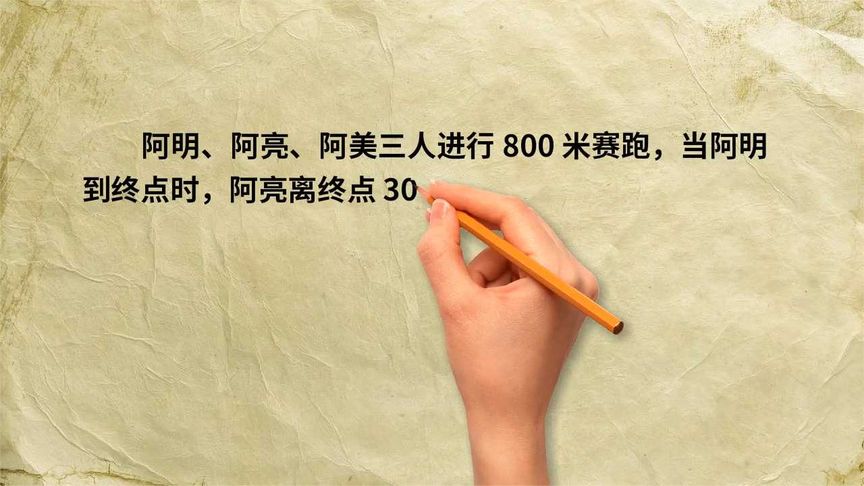 阿明、阿亮、阿美三人进行 800 米赛跑，当阿明
到终点时，阿亮离终点 30